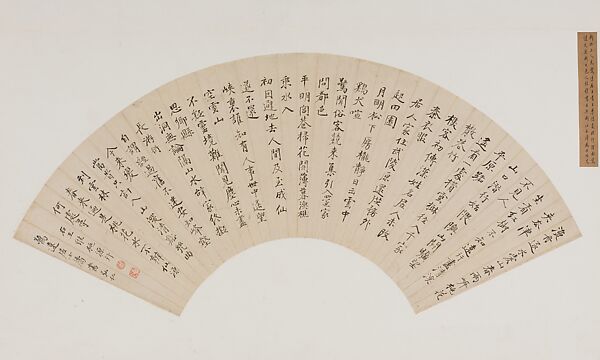 漁舟逐水愛山春兩岸桃花
夾古津
坐看紅樹不知遠行盡青溪
不見人
山口潛行始隈隩山開曠望
旋平陸
遙看一處攢雲樹近入千家
散花竹
樵客初傳漢姓名居人未改
秦衣服
居人共住武陵原還從物外
起田園
月明松下房櫳靜日出雲中
鷄犬喧
驚聞俗客競來集引入還家
問都邑
平明閭巷掃花開薄暮漁樵
乘水入
初因避地去人間及至成仙
遂不還
峽裏誰知有人事世中遙望
空雲山
不疑靈境難聞見塵心未盡
思鄉縣
出洞無論隔山水辭家終擬
長游衍
自謂經過舊不迷安知峰壑
今來變
當時只記入山深青溪幾曲
到雲林
春來遍是桃花水不辨仙源
何處尋
右王維桃源行